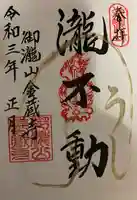 奉拝
瀧不動
うし
御瀧山金蔵寺
令和三年正月